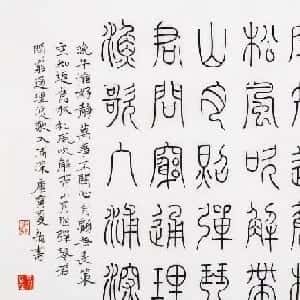 松風吹解帶
山月照彈琴
君問窮通理
漁歌入浦深
晚年惟好靜萬事不關心自顧無長策
空知返舊林松風吹解帶山月照彈琴君
問窮通理漁歌入浦深庚寅夏書